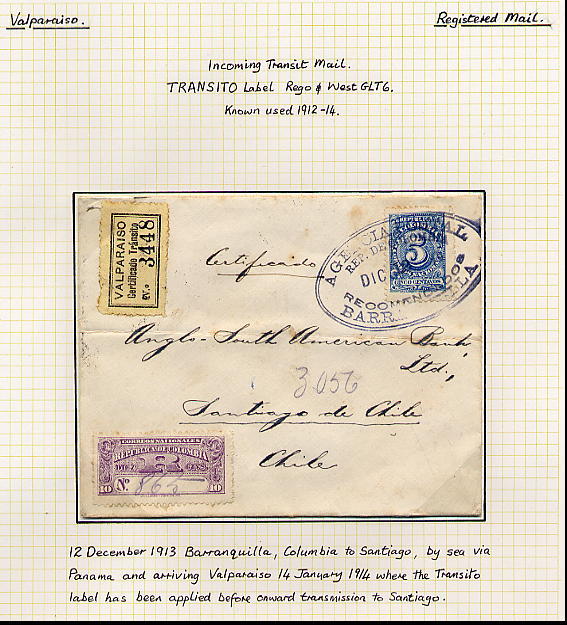 Valparaiso.
Registered Mail.
Incoming Transit Mail.
TRANSITO Label Rego & West GLT6.
Known used 1912-14.
VALPARAISO
Certificado Tránsito
3448
AGENCIA
REP. DE
DIC
RECOMENDADOS
BARR
5
Certificado
Anglo-South American Bank
Ltd.,
3.056
Santiago de Chile
Chile
CORREOS NACIONALES
REPUBLICA DE COLOMBIA
DIEZ CENS.
10 No. 865 10
12 December 1913 Barranquilla, Columbia to Santiago, by sea via
Panama and arriving Valparaiso 14 January 1914 where the Transito
label has been applied before onward transmission to Santiago.